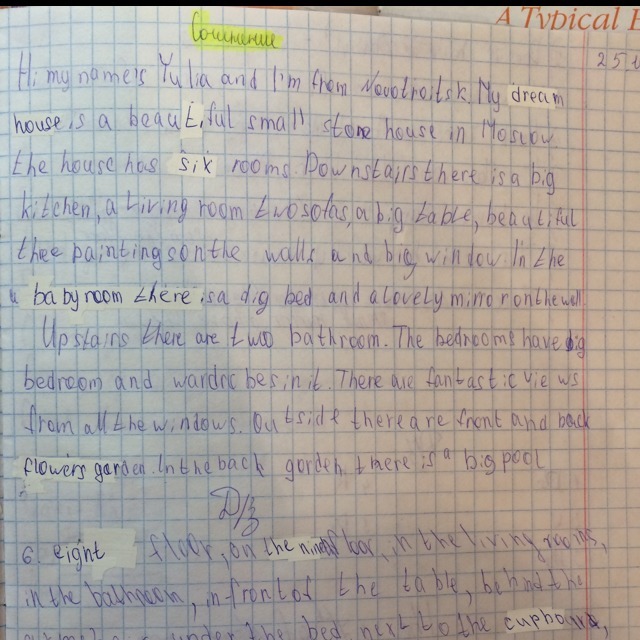 A Typical
Сочинение
25
Hi my name's Yulia and I'm from Novotroitsk. My dream
house is a beautiful small stone house in Moscow
the house has six rooms. Downstairs there is a big
kitchen, a living room two sofas, a big table, beautiful
thee paintings on the walls and big window. In the
baby room there is a dig bed and a lovely mirror on the wall.
Upstairs there are two bathroom. The bedrooms have big
bedroom and wardrobes in it. There are fantastic views
from all the windows. Outside there are front and back
flowers garden. In the back gorden there is a big pool
Д/з
6. eight floor, on the ninth floor, in the living rooms,
in the bathroom, in front of the table, behind the
under the bed, next to the cupboard,